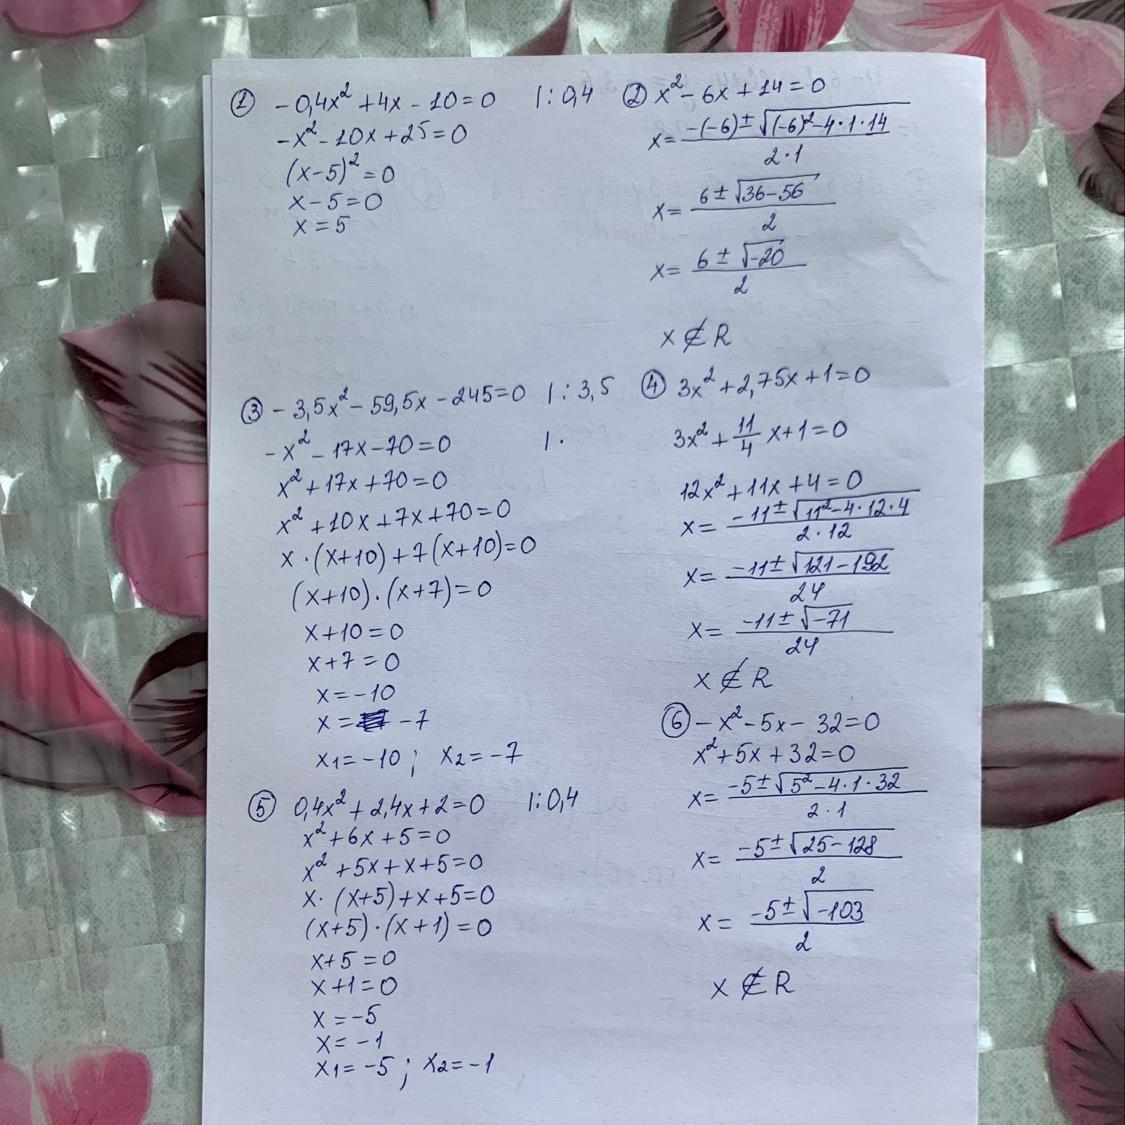 ① -0,4x² + 4x - 10 = 0 |: 0,4
-x² - 10x + 25 = 0
(x-5)² = 0
x - 5 = 0
x = 5
② x² - 6x + 14 = 0
x = (-(-6) ± √((-6)² - 4·1·14)) / (2·1)
x = (6 ± √(36-56)) / 2
x = (6 ± √(-20)) / 2
x ∉ R
③ -3,5x² - 59,5x - 245 = 0 |: 3,5
-x² - 17x - 70 = 0 |·
x² + 17x + 70 = 0
x² + 10x + 7x + 70 = 0
x·(x+10) + 7(x+10) = 0
(x+10)·(x+7) = 0
x + 10 = 0
x + 7 = 0
x = -10
x = -7
x₁ = -10 ; x₂ = -7
④ 3x² + 2,75x + 1 = 0
3x² + 11/4 x + 1 = 0
12x² + 11x + 4 = 0
x = (-11 ± √(11² - 4·12·4)) / (2·12)
x = (-11 ± √(121 - 192)) / 24
x = (-11 ± √(-71)) / 24
x ∉ R
⑤ 0,4x² + 2,4x + 2 = 0 |: 0,4
x² + 6x + 5 = 0
x² + 5x + x + 5 = 0
x·(x+5) + x + 5 = 0
(x+5)·(x+1) = 0
x + 5 = 0
x + 1 = 0
x = -5
x = -1
x₁ = -5 ; x₂ = -1
⑥ -x² - 5x - 32 = 0
x² + 5x + 32 = 0
x = (-5 ± √(5² - 4·1·32)) / (2·1)
x = (-5 ± √(25 - 128)) / 2
x = (-5 ± √(-103)) / 2
x ∉ R